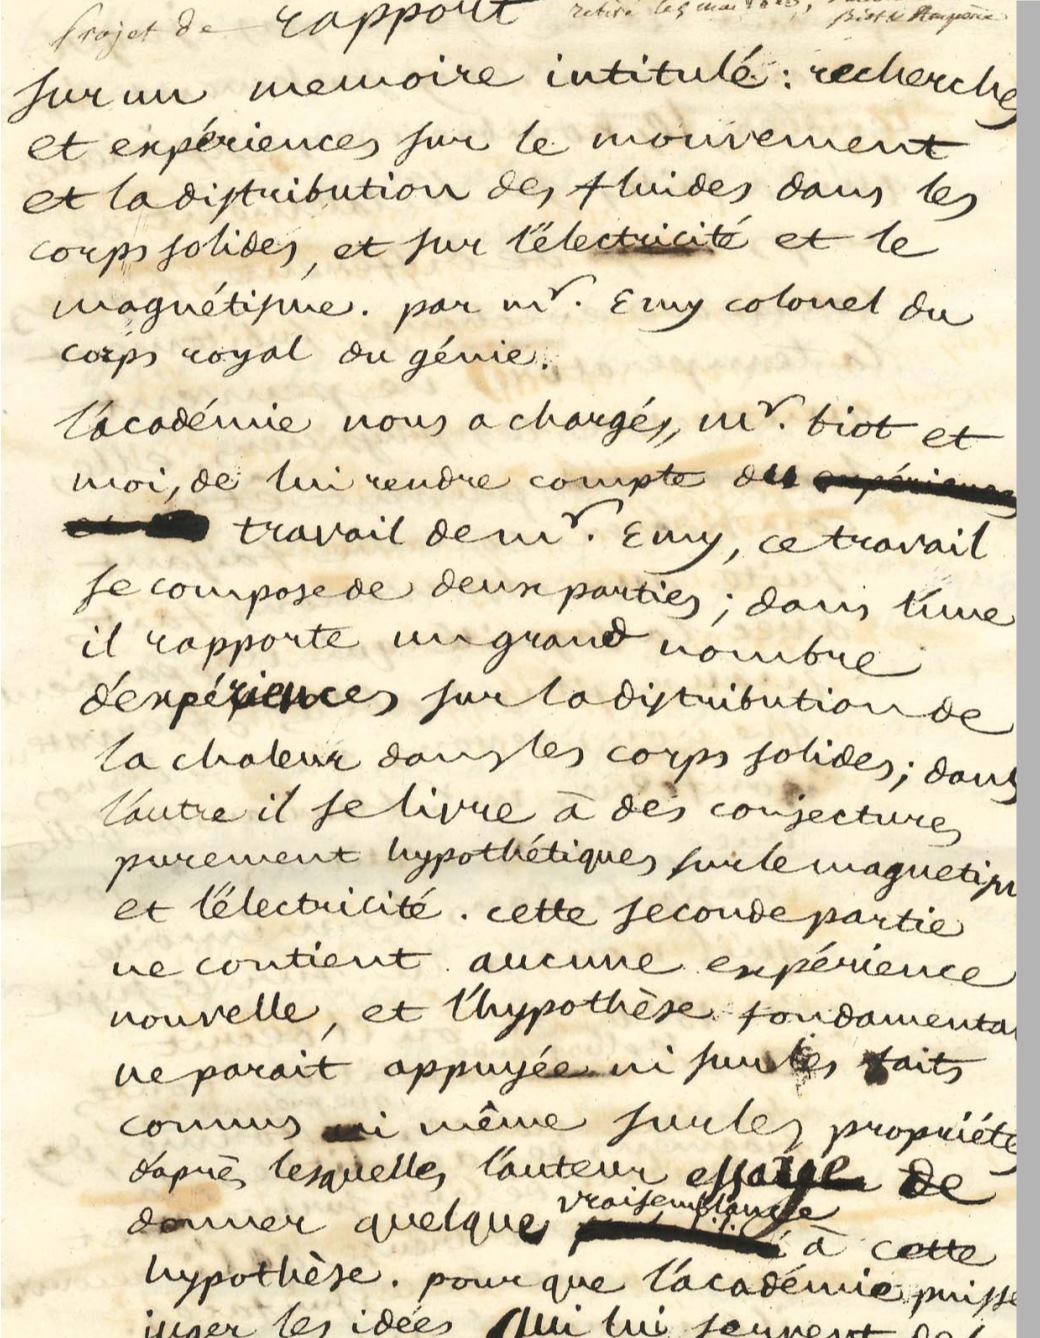 Projet de rapport
sur un memoire intitulé : recherches
et expériences sur le mouvement
et la distribution des fluides dans les
corps solides, et sur l'électricité et le
magnétisme. par mr. Emy colonel du
corps royal du génie.
l'académie nous a chargés, mr. biot et
moi, de lui rendre compte du expériences
travail de mr. Emy, ce travail
se compose de deux parties ; dans l'une
il rapporte un grand nombre
d'expériences sur la distribution de
la chaleur dans les corps solides ; dans
l'autre il se livre à des conjectures
purement hypothétiques sur le magnetism
et l'électricité. cette seconde partie
ne contient aucune expérience
nouvelle, et l'hypothèse fondamenta
ne parait appuyée ni sur les faits
connus ni même sur les propriétés
d'après lesquelles l'auteur essaye de
vraisemblance
donner quelque à cette
hypothèse. pour que l'académie puisse
juger les idées qui lui servent de